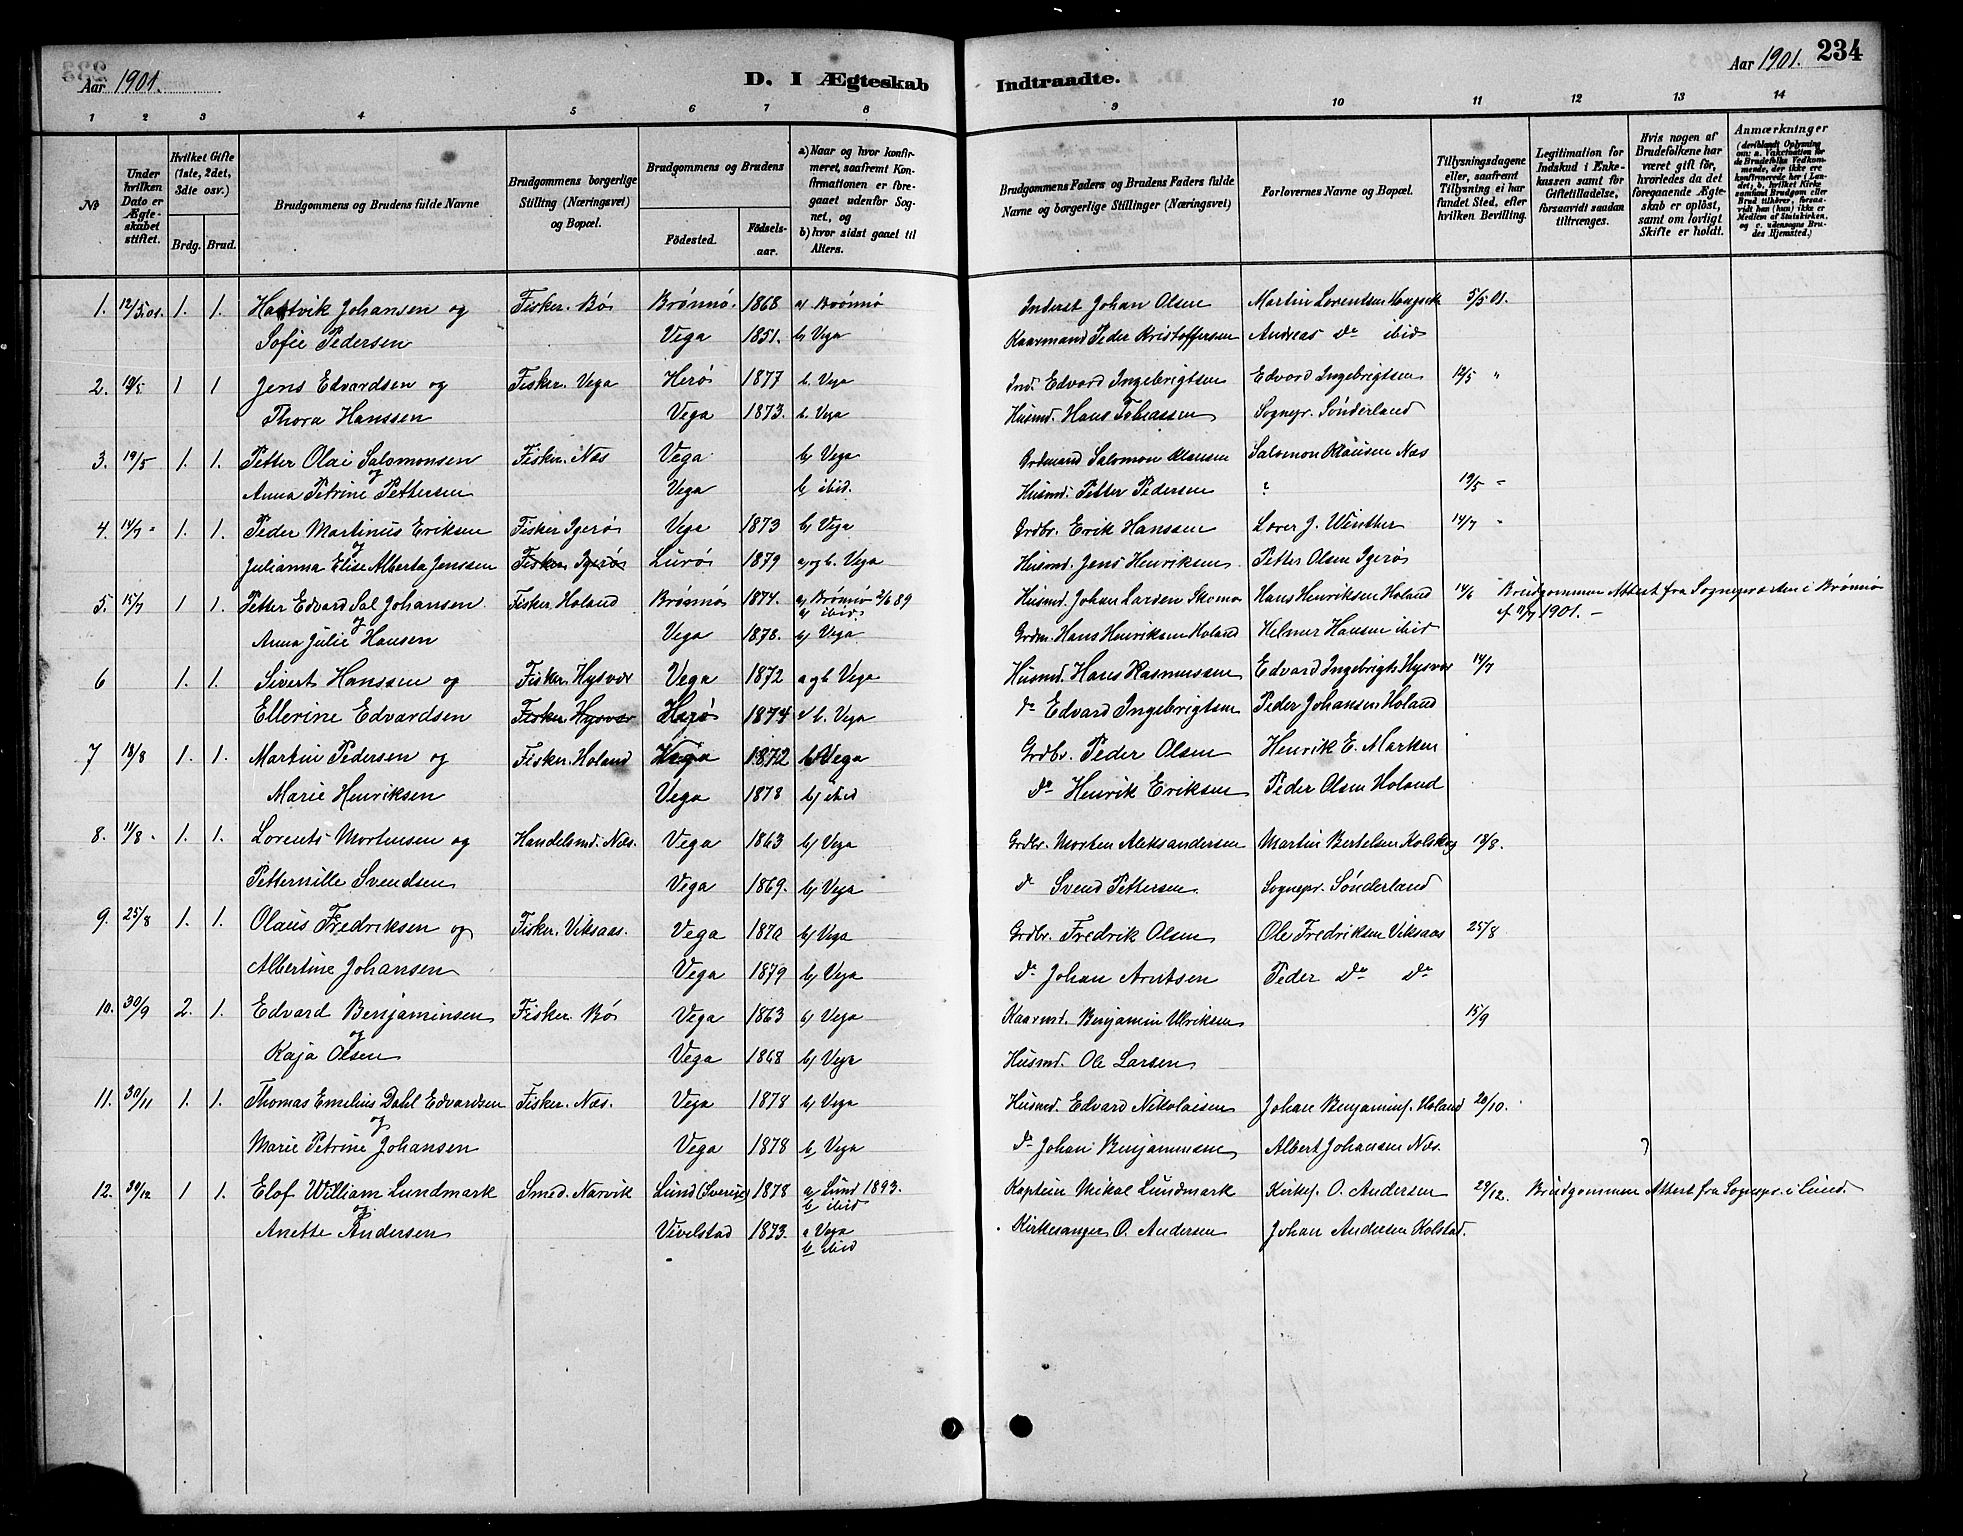 Aar 1901.
D. I Ægteskab Indtraadte.
Aar 1901. 234
1 2 3 4 5 6 7 8 9 10 11 12 13 14
No
Under hvilken Dato er Ægteskabet stiftet.
Hvilket Gifte (1ste, 2det, 3die osv.)
Brdg. Brud.
Brudgommens og Brudens fulde Navne
Brudgommens borgerlige Stilling (Næringsvei) og Bopæl.
Brudgommens og Brudens
Födested. Födselsaar.
a) Naar og hvor konfirmeret, saafremt Konfirmationen er foregaaet udenfor Sognet, og
b) hvor sidst gaaet til Alters.
Brudgommens Faders og Brudens Faders fulde Navne og borgerlige Stillinger (Næringsvei)
Forlovernes Navne og Bopæl.
Tillysningsdagene eller, saafremt Tillysning ei har fundet Sted, efter hvilken Bevilling.
Legitimation for Indskud i Enkekassen samt for Giftetilladelse, forsaavidt saadan tiltrænges.
Hvis nogen af Brudefolkene har været gift för, hvorledes da det foregaaende Ægteskab er oplöst, samt om lovligt Skifte er holdt.
Anmærkninger (deriblandt Oplysning om: a. Vakcination for de Brudefolks Vedkommende, der ikke ere konfirmerede her i Landet; b. hvilket Kirkesamfund Brudgom eller Brud tilhörer, forsaavidt han (hun) ikke er Medlem af Statskirken, og c. udensogns Brudes Hjemsted.)
1. 12/5 01. 1. 1. Hartvik Johansen og Fisker. Bø Brønnø. 1868 a) Brønnø Inderst Johan Olsen Martin Lorentsen 5/5 01.
Sofie Pedersen Vega 1851. b) Vega Kaarmand Peder Kristoffersen Andreas do ibid
2. 19/5 1 1 Jens Edvardsen og Fisker. Vega Herø 1877 b. Vega Ind. Edvard Ingebrigtsen Edvard Ingebrigtsen 12/5 "
Thora Hanssen Vega 1873. b. Vega Husmd. Hans Tobiassen Sognepr. Sønderland
3. 19/5 1. 1. Petter Olai Salomonsen Fisker. Næs Vega b) Vega Grdmand Salomon Klausen Salomon Klausen Næs
og
Anna Petrine Pettersen Vega b) ibid. Husmd. Petter Pedersen ? 19/5 "
4. 14/7 " 1. 1. Peder Martinus Eriksen Fisker Igerø Vega 1873 b) Vega Grdbr. Erik Hanssen Lærer J. Winther 14/7 "
og
Julianna Elise Alberta Jenssen Fisker Igerø Lurø 1879 a) og b. Vega Husmd. Jens Henriksen Petter Olsen Igerø
5. 15/7 1 1 Petter Edvard Sal Johansen Fisker. Holand Brønnø 1874. a) Brønnø 2/6 89 Husmd. Johan Larsen Skomo Hans Henriksen Holand 14/6 Brudgommen Attest fra Sognepræsten i Brønnø
og b) ibid. 1901. -
Anna Julie Hansen Vega 1878. b) Vega Grdm. Hans Henriksen Holand Helmer Hansen ibid
6 1. 1. Sivert Hanssen og Fisker. Hysvær Vega 1872 a og b Vega Husmd. Hans Rasmussen Edvard Ingebrigts Hysvær 14/7
Ellerine Edvardsen Fisker. Hysvær Herø 1874 b. Vega do Edvard Ingebrigtsen Peder Johansen Holand
7 18/8 1. 1. Martin Pedersen og Fisker. Holand Vega 1872 b) Vega Grdbr. Peder Olsen Henrik E. Marken
Marie Henriksen Vega 1878 b) ibid do Henrik Eriksen Peder Olsen Holand
8. 11/8 - 1. 1. Lorents Mortensen og Handelsmd. Næs. Vega 1863 b) Vega Grdbr. Morten Aleksandersen Martin Bertelsen 18/8.
Petternille Svendsen Vega 1869. b) Vega do Svend Pettersen. Sognepr. Sønderland
9. 25/8 1. 1. Olaus Fredriksen og Fisker. Viksaas. Vega 1870 b) Vega Grdbr. Fredrik Olsen Ole Fredriksen Viksaas 25/8
Albertine Johansen Vega 1879 b) Vega do Johan Arntsen Peder do do
10. 30/9 2. 1. Edvard Benjaminsen Fisker. Bø Vega 1863 b) Vega Kaarmd. Benjamin Ulriksen 15/9
og
Kaja Olsen Vega 1868 b) Vega Husmd. Ole Larsen
11. 30/11 1. 1. Thomas Emilius Dahl Edvardsen Fisker. Næs. Vega 1878 b) Vega Husmd. Edvard Nikolaisen Johan Benjamins. Holand 20/10.
og
Marie Petrine Johansen Vega 1878 b) Vega do Johan Benjaminsen Albert Johansen Næs. ?
12. 30/12 1 1. Elof William Lundmark Smed. Narvik Lund (Sverige) 1878 a) Lund 1893. Kaptein Mikal Lundmark Kirkes. O. Andersen 29/12. Brudgommen Attest fra Sognepr. i Lund.
og b) ibid
Anette Andersen Vivelstad 1873. a Vega Kirkesanger O. Andersen Johan Andersen Kolstad.
b) ibid